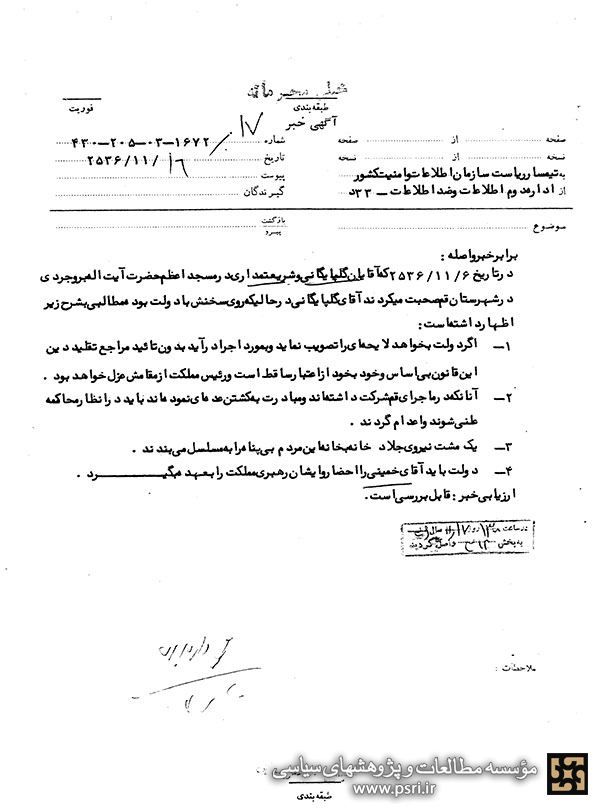 خیلی محرمانه
طبقه‌بندی
فوریت
آگهی خبر
صفحه از صفحه شماره ۱۶۷۲-۰۳-۲۰۵-۴۳۰ ۱۷
نسخه از نسخه تاریخ ۲۵۳۶/۱۱/۱۶
به تیمسار ریاست سازمان اطلاعات و امنیت کشور پیوست
از اداره دوم اطلاعات و ضد اطلاعات - ۳۳د گیرندگان
موضوع بازگشت
پیرو
برابر خبر واصله :
در تاریخ ۲۵۳۶/۱۱/۶ که آقایان گلپایگانی و شریعتمداری در مسجد اعظم حضرت آیت اله بروجردی
در شهرستان قم صحبت میکردند آقای گلپایگانی در حالیکه روی سخنش با دولت بود مطالبی بشرح زیر
اظهار داشته است :
۱- اگر دولت بخواهد لایحه‌ای را تصویب نماید و بمورد اجرا درآید بدون تائید مراجع تقلید دین
این قانون بی اساس و خود بخود از اعتبار ساقط است و رئیس مملکت از مقامش عزل خواهد بود .
۲- آنانکه در ماجرای قم شرکت داشته‌اند و مبادرت به کشتن عده‌ای نموده‌اند باید در انظار محاکمه
علنی شوند و اعدام گردند .
۳- یک مشت نیروی جلاد خانه بخانه این مردم بی پناه را به مسلسل می بندند .
۴- دولت باید آقای خمینی را احضار و ایشان رهبری مملکت را بعهده میگیرد .
ارزیابی خبر : قابل بررسی است .
در ساعت روز سال
به بخش ۳۱۲ واصل گردید
ملاحظات :
مؤسسه مطالعات و پژوهشهای سیاسی
www.psri.ir
طبقه‌بندی